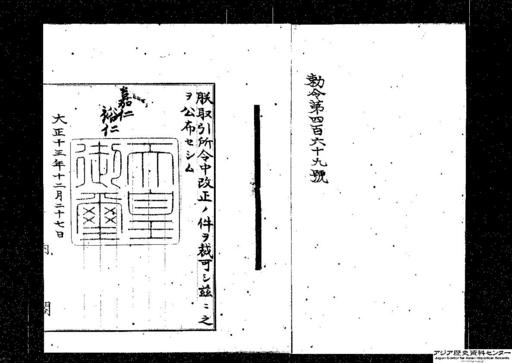 勅令第四百六十九號
朕取引所令中改正ノ件ヲ裁可シ茲ニ之
ヲ公布セシム
嘉仁
裕仁
天皇
御璽
大正十三年十二月二十七日
内閣
アジア歴史資料センター
Japan Center for Asian Historical Records